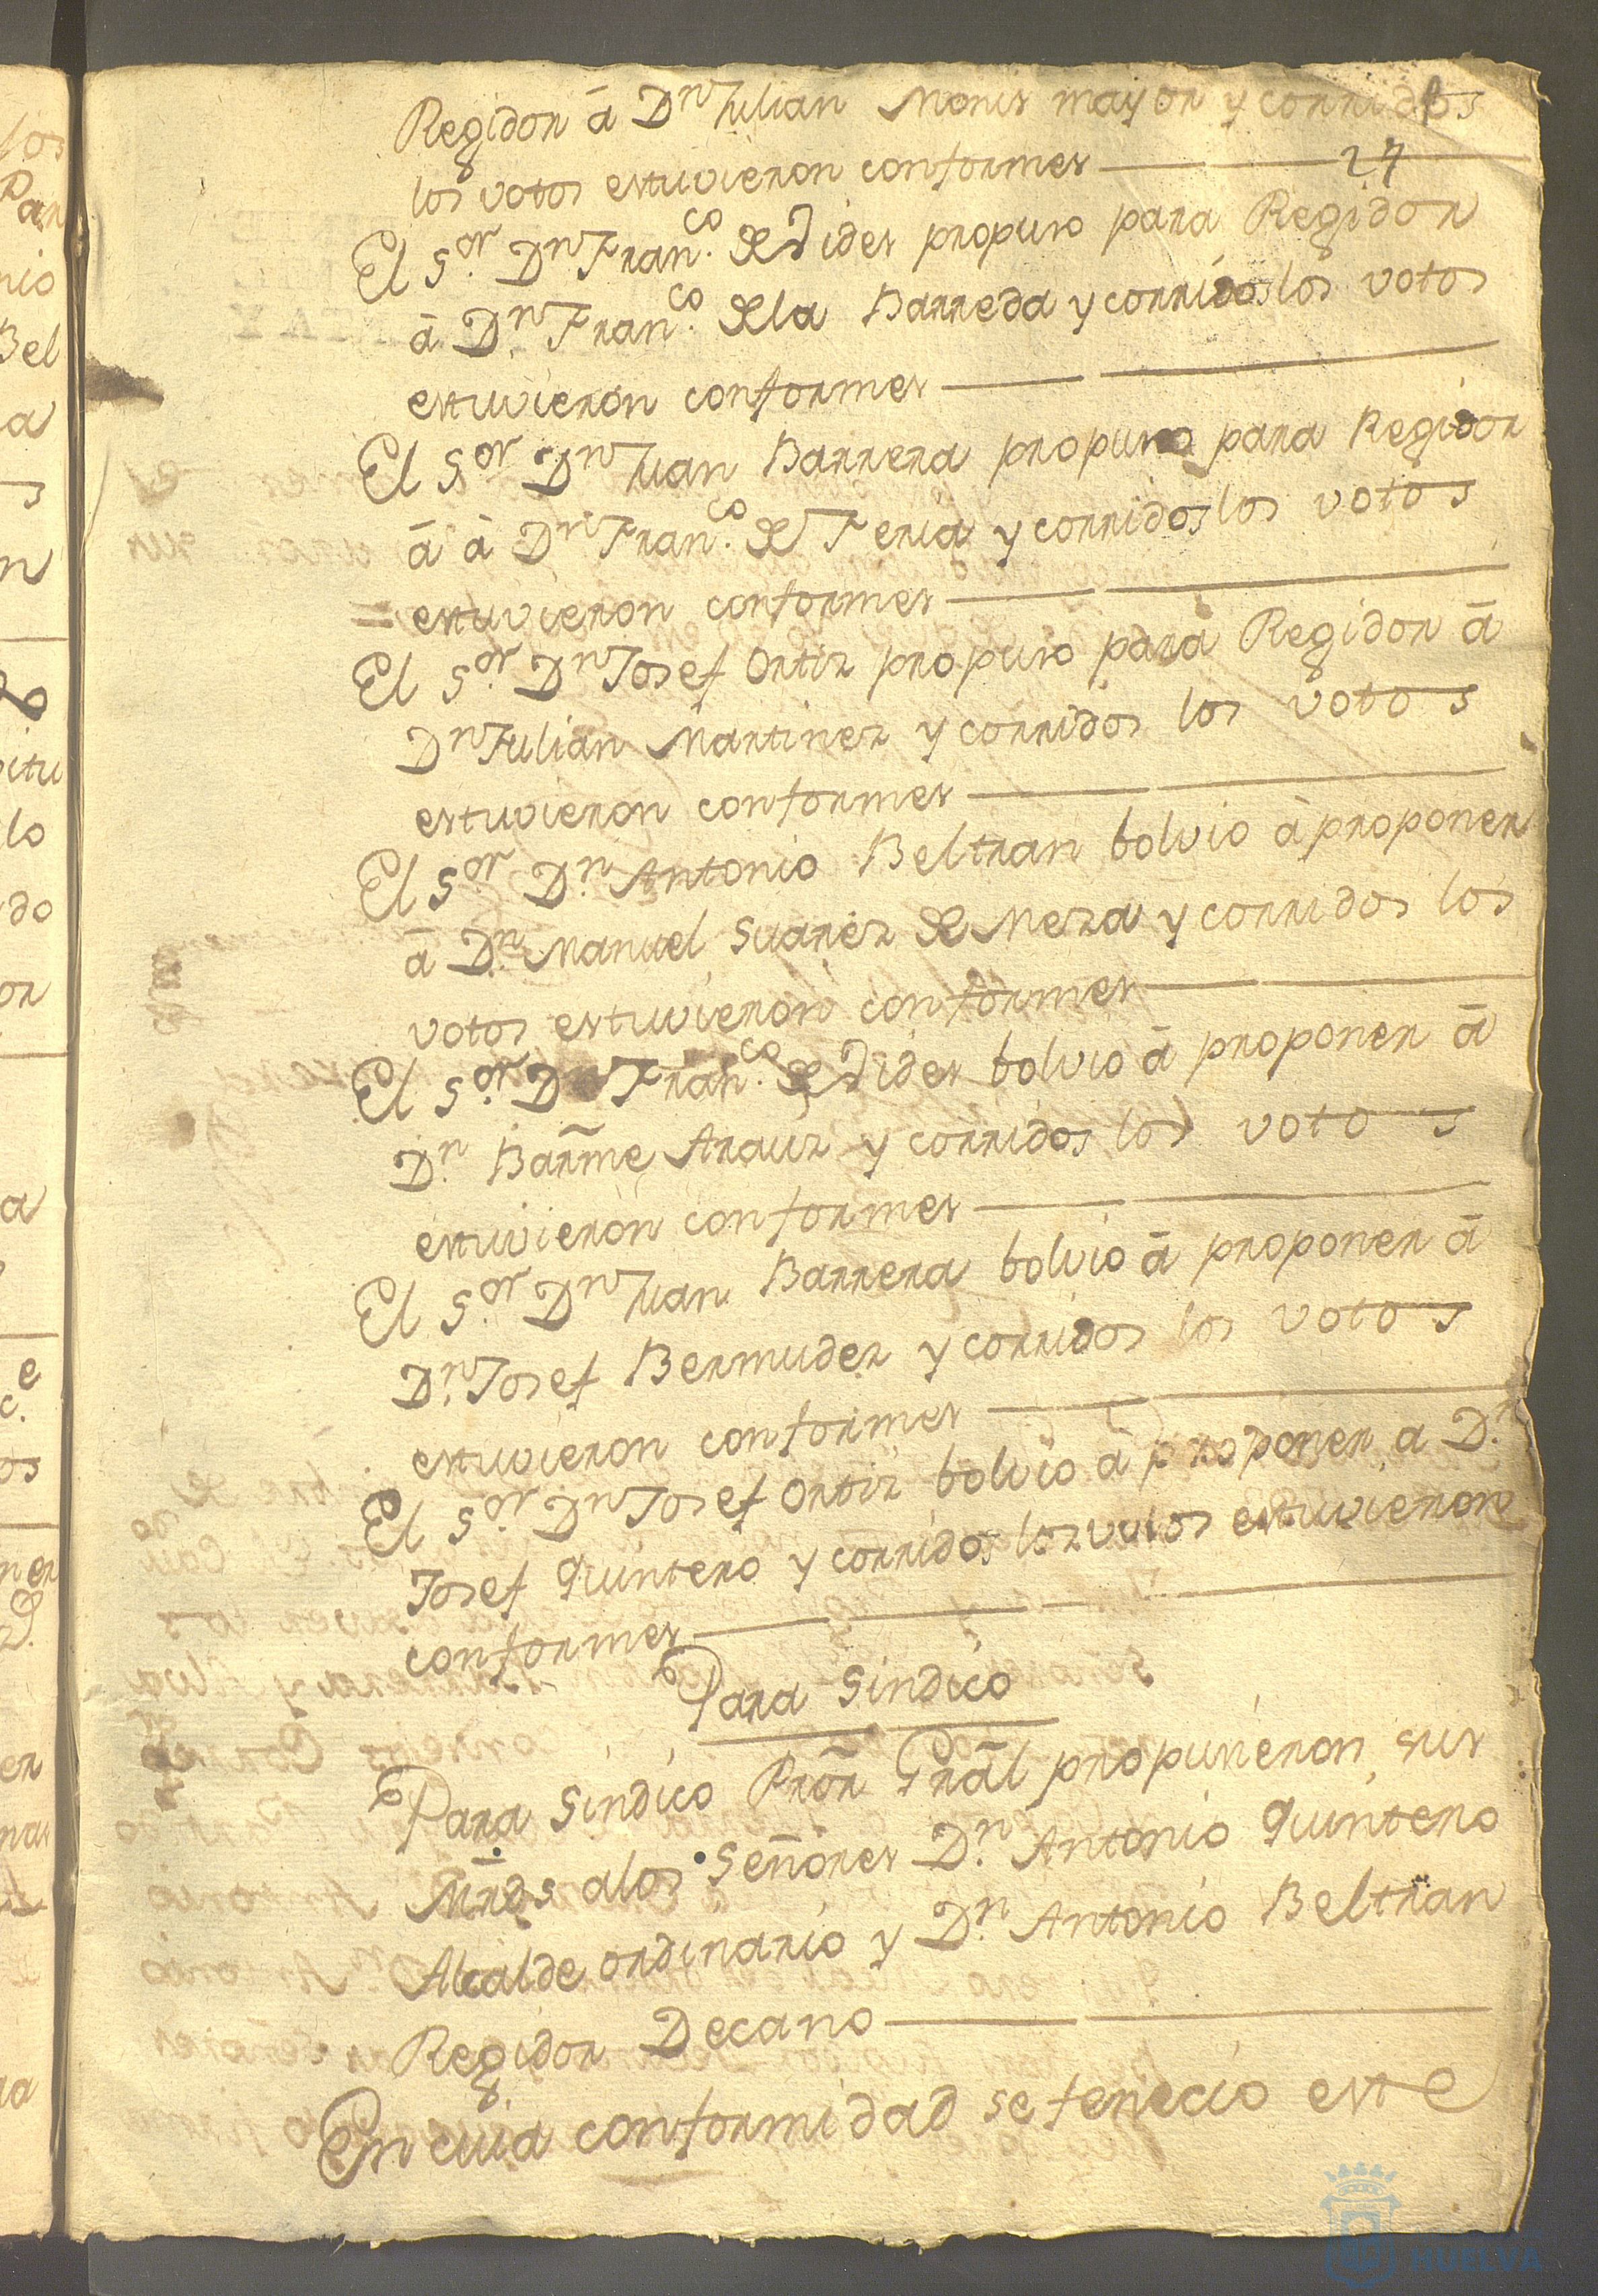 Regidor â Dn Julian Monis mayor y corridos
los votos estuvieron conformes
27
El Sor. Dn Franco. de Vides propuso para Regidor
â Dn. Franco. de la Barreda y corridos los votos
estuvieron conformes
El Sor Dn Juan Barrera propuso para Regidor
â â Dn Franco. de Feria y corridos los votos
= estuvieron conformes
El Sor. Dn Josef Ortiz propuso para Regidor â
Dn Julian Martinez y corridos los votos
estuvieron conformes
El Sor Dn. Antonio Beltran bolvio â proponer
â Dn. Manuel Suarez de Meza y corridos los
votos estuvieron conformes
El Sor. Dn Franco. de Vides bolvio â proponer â
Dn. Barme Arauz y corridos los votos
estuvieron conformes
El Sor. Dn Juan Barrera bolvio â proponer â
Dn. Josef Bermudez y corridos los votos
estuvieron conformes
El Sor. Dn Josef Ortiz bolvio â proponer a Dn.
Josef Quintero y corridos los votos estuvieron
conformes
Para Sindico
Para Sindico Pror Gral propusieron sus
Mrds a los Señores Dn. Antonio Quintero
Alcalde ordinario y Dn. Antonio Beltran
Regidor Decano
En cuia conformidad se fenecio este
HUELVA